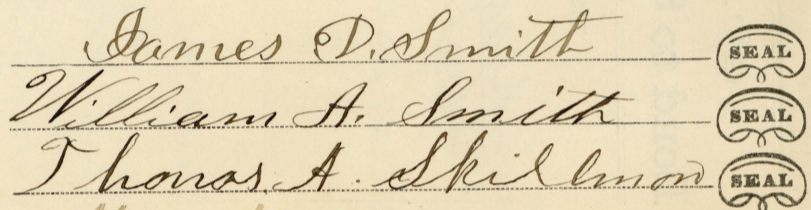 James D. Smith SEAL
William A. Smith SEAL
Thomas A. Skillman SEAL